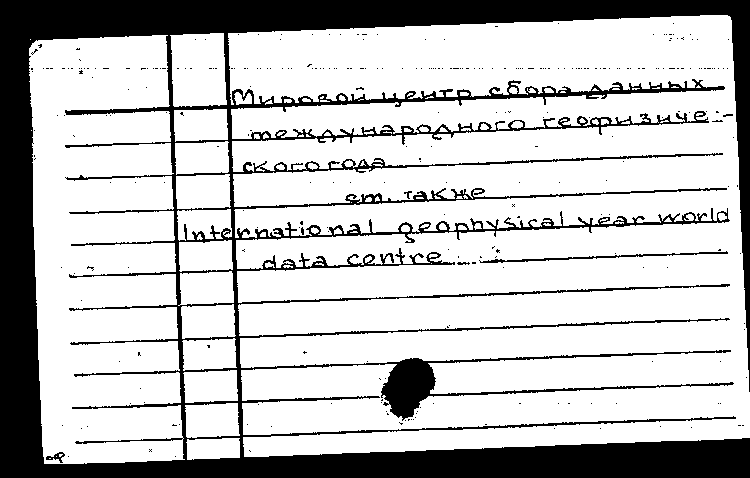 Мировой центр сбора данных
международного геофизиче-
ского года
см. также
International geophysical year world
data centre